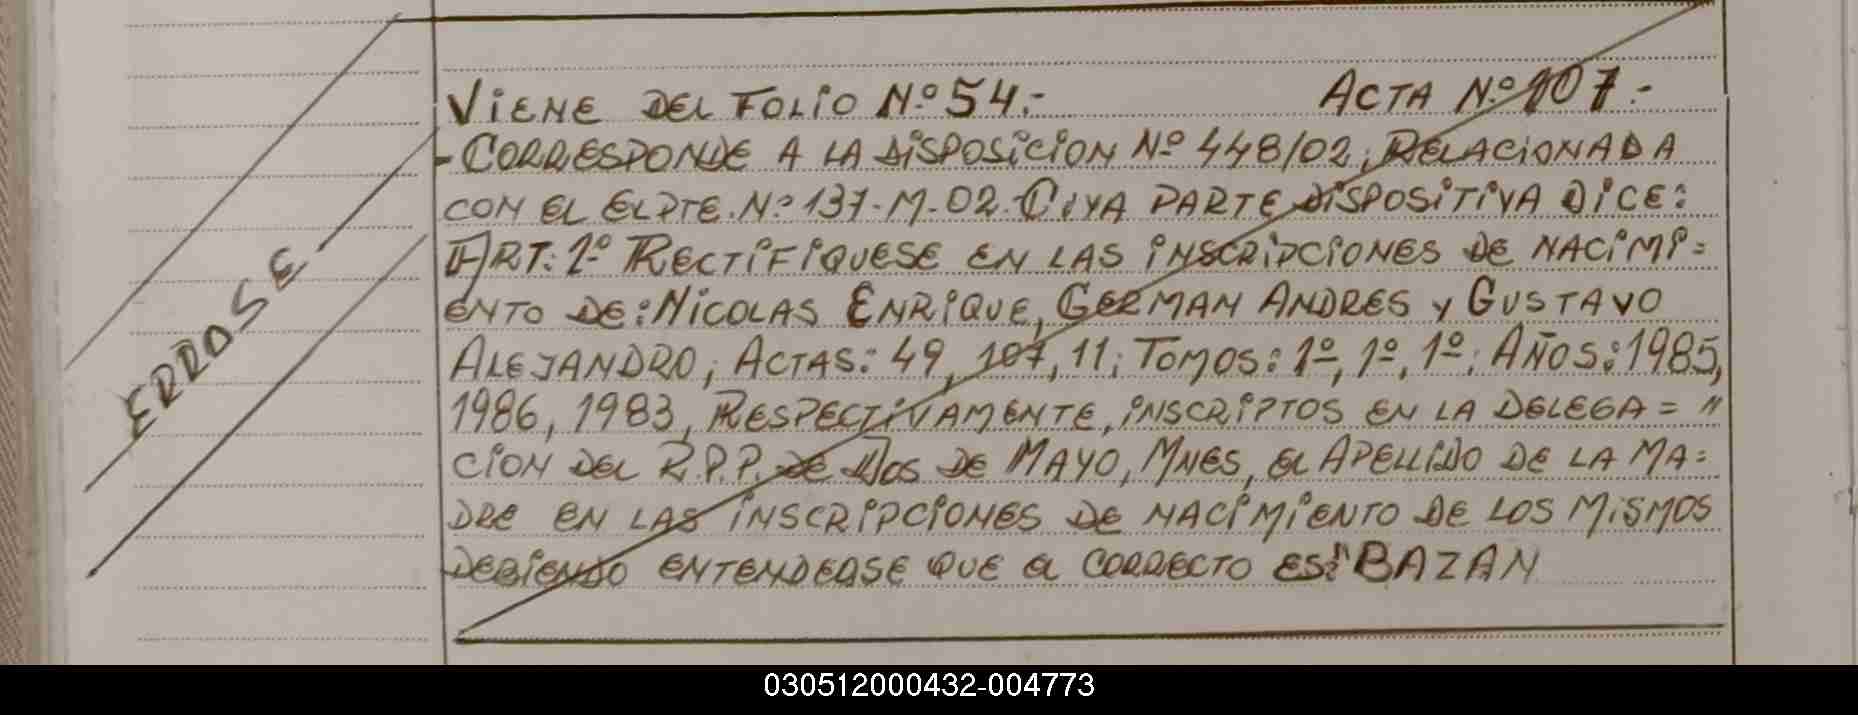 VIENE DEL FOLIO N.º 54.- ACTA N.º 107.-
- CORRESPONDE A LA DISPOSICION Nº 448/02, RELACIONADA
CON EL EXPTE. N.º 137-M-02. CUYA PARTE DISPOSITIVA DICE:
ART: 1º RECTIFIQUESE EN LAS INSCRIPCIONES DE NACIMI=
ENTO DE: NICOLAS ENRIQUE, GERMAN ANDRES Y GUSTAVO
ALEJANDRO; ACTAS: 49, 107, 11; TOMOS: 1º, 1º, 1º; AÑOS: 1985,
1986, 1983, RESPECTIVAMENTE, INSCRIPTOS EN LA DELEGA= "
CION DEL R.P.P. DE DOS DE MAYO, MNES, EL APELLIDO DE LA MA=
DRE EN LAS INSCRIPCIONES DE NACIMIENTO DE LOS MISMOS
DEBIENDO ENTENDERSE QUE EL CORRECTO ES: "BAZAN
ERROSE
030512000432-004773